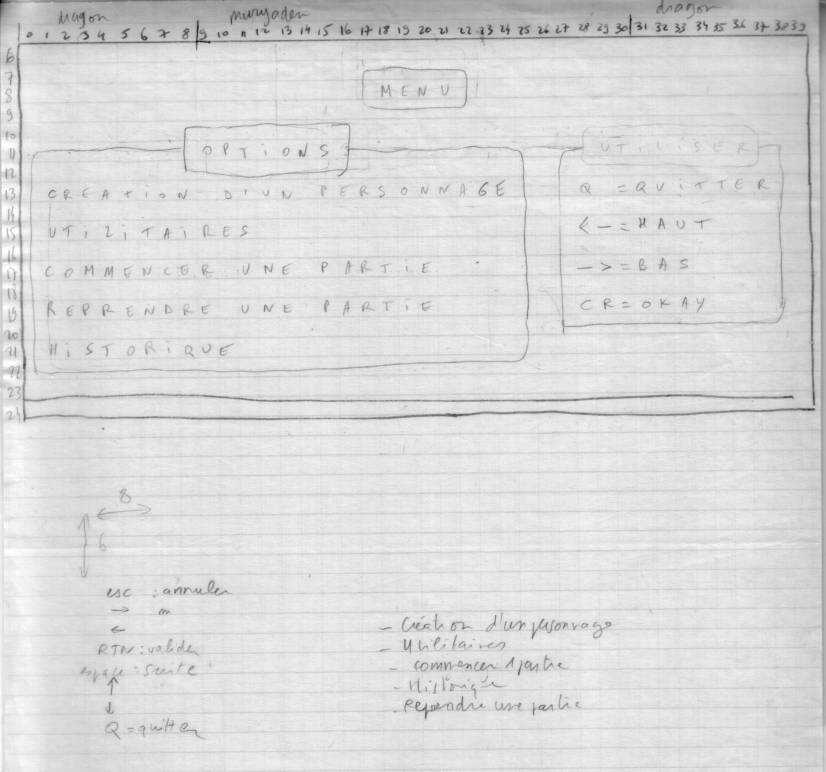 dragon
dragon
0 1 2 3 4 5 6 7 8 9 10 11 12 13 14 15 16 17 18 19 20 21 22 23 24 25 26 27 28 29 30 31 32 33 34 35 36 37 38 39
6
7
MENU
8
9
10
11 OPTIONS UTILISER
12
13 CREATION D'UN PERSONNAGE Q = QUITTER
14
15 UTILITAIRES <- = HAUT
16
17 COMMENCER UNE PARTIE -> = BAS
18
19 REPRENDRE UNE PARTIE CR = OKAY
20
21 HISTORIQUE
22
23
24
8
6
esc : annuler
→
←
RTN : valider
espace : suite
↑
↓
Q = quitter
- Création d'un personnage
- Utilitaires
- commencer 1 partie
- Historique
- Reprendre une partie